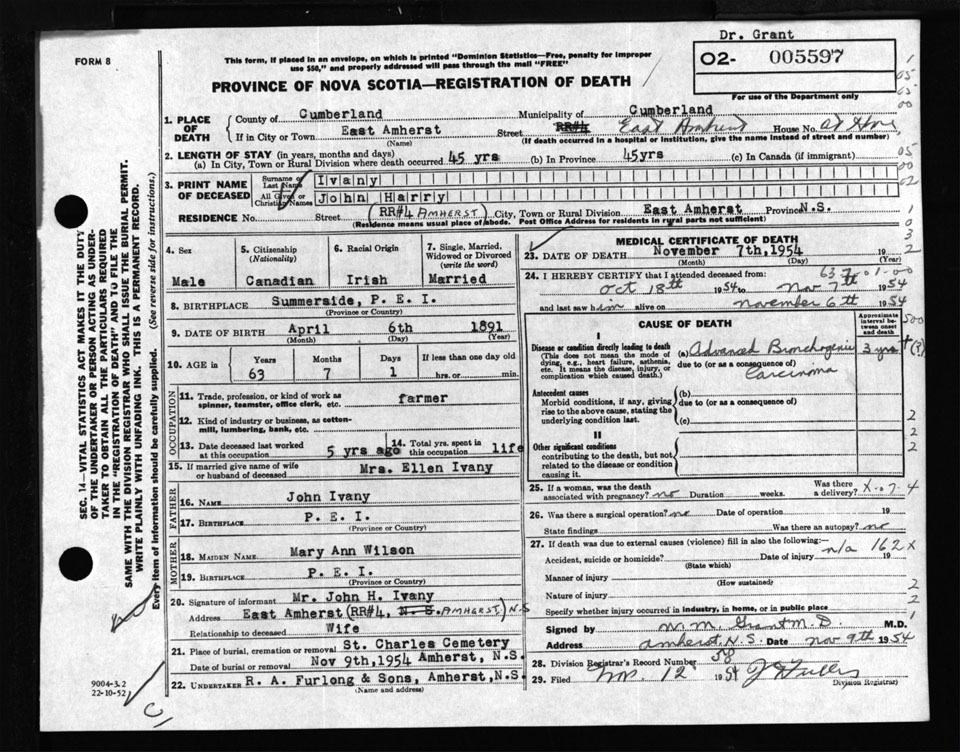 Dr. Grant
FORM 8
This form, if placed in an envelope, on which is printed "Dominion Statistics—Free, penalty for improper
use $50," and properly addressed will pass through the mail "FREE"
02- 005597
For use of the Department only
PROVINCE OF NOVA SCOTIA—REGISTRATION OF DEATH
1. PLACE OF DEATH
County of Cumberland Municipality of Cumberland
If in City or Town East Amherst Street RR#4 East Amherst House No. at Home
(Name) (If death occurred in a hospital or institution, give the name instead of street and number)
2. LENGTH OF STAY (in years, months and days)
(a) In City, Town or Rural Division where death occurred 45 yrs (b) In Province 45yrs (c) In Canada (if immigrant)
3. PRINT NAME OF DECEASED
Surname or Last Name Ivany
All Given or Christian Names John Harry
RESIDENCE No. Street (RR#4 AMHERST) City, Town or Rural Division East Amherst Province N.S.
(Residence means usual place of abode. Post Office Address for residents in rural parts not sufficient)
4. Sex
Male
5. Citizenship
(Nationality)
Canadian
6. Racial Origin
Irish
7. Single, Married,
Widowed or Divorced
(write the word)
Married
8. BIRTHPLACE Summerside, P. E. I.
(Province or Country)
9. DATE OF BIRTH April 6th 1891
(Month) (Day) (Year)
10. AGE in
Years Months Days If less than one day old
63 7 1 hrs. or min.
OCCUPATION
11. Trade, profession, or kind of work as
spinner, teamster, office clerk, etc. farmer
12. Kind of industry or business, as cotton-
mill, lumbering, bank, etc.
13. Date deceased last worked
at this occupation 5 yrs ago
14. Total yrs. spent in
this occupation life
15. If married give name of wife
or husband of deceased Mrs. Ellen Ivany
FATHER
16. NAME John Ivany
17. BIRTHPLACE P. E. I.
(Province or Country)
MOTHER
18. MAIDEN NAME Mary Ann Wilson
19. BIRTHPLACE P. E. I.
(Province or Country)
20. Signature of informant Mr. John H. Ivany
Address East Amherst (RR#4, N. S. AMHERST) N S
Relationship to deceased Wife
21. Place of burial, cremation or removal St. Charles Cemetery
Date of burial or removal Nov 9th,1954 Amherst, N.S.
22. UNDERTAKER R. A. Furlong & Sons, Amherst,N.S.
(Name and address)
MEDICAL CERTIFICATE OF DEATH
23. DATE OF DEATH November 7th,1954 19
(Month) (Day) (Year)
24. I HEREBY CERTIFY that I attended deceased from:
Oct 18th 1954 to Nov 7th 1954
and last saw him alive on November 6th 1954
CAUSE OF DEATH
Approximate
interval be-
tween onset
and death
I
Disease or condition directly leading to death
(This does not mean the mode of
dying, e.g., heart failure, asthenia,
etc. It means the disease, injury, or
complication which caused death.)
(a) Advanced Bronchogenic 3 yrs + (?)
due to (or as a consequence of)
Carcinoma
Antecedent causes
Morbid conditions, if any, giving
rise to the above cause, stating the
underlying condition last.
(b)
due to (or as a consequence of)
(c)
II
Other significant conditions
contributing to the death, but not
related to the disease or condition
causing it.
25. If a woman, was the death
associated with pregnancy? no Duration weeks. Was there
a delivery? X-07-4
26. Was there a surgical operation? no Date of operation 19
State findings Was there an autopsy? no
27. If death was due to external causes (violence) fill in also the following:—
n/a 162 x
Accident, suicide or homicide? Date of injury 19
(State which)
Manner of injury
(How sustained)
Nature of injury
Specify whether injury occurred in industry, in home, or in public place
Signed by W. M. Grant M. D. M.D.
Address Amherst, N.S. Date Nov 9th 1954
28. Division Registrar's Record Number 58
29. Filed Nov. 12 1954
Division Registrar)
SEC. 14—VITAL STATISTICS ACT MAKES IT THE DUTY
OF THE UNDERTAKER OR PERSON ACTING AS UNDER-
TAKER TO OBTAIN ALL THE PARTICULARS REQUIRED
IN THE "REGISTRATION OF DEATH" AND TO FILE THE
SAME WITH THE DIVISION REGISTRAR WHO SHALL ISSUE THE BURIAL PERMIT.
WRITE PLAINLY WITH UNFADING INK. THIS IS A PERMANENT RECORD.
Every item of information should be carefully supplied. (See reverse side for instructions.)
9004-3.2
22-10-52